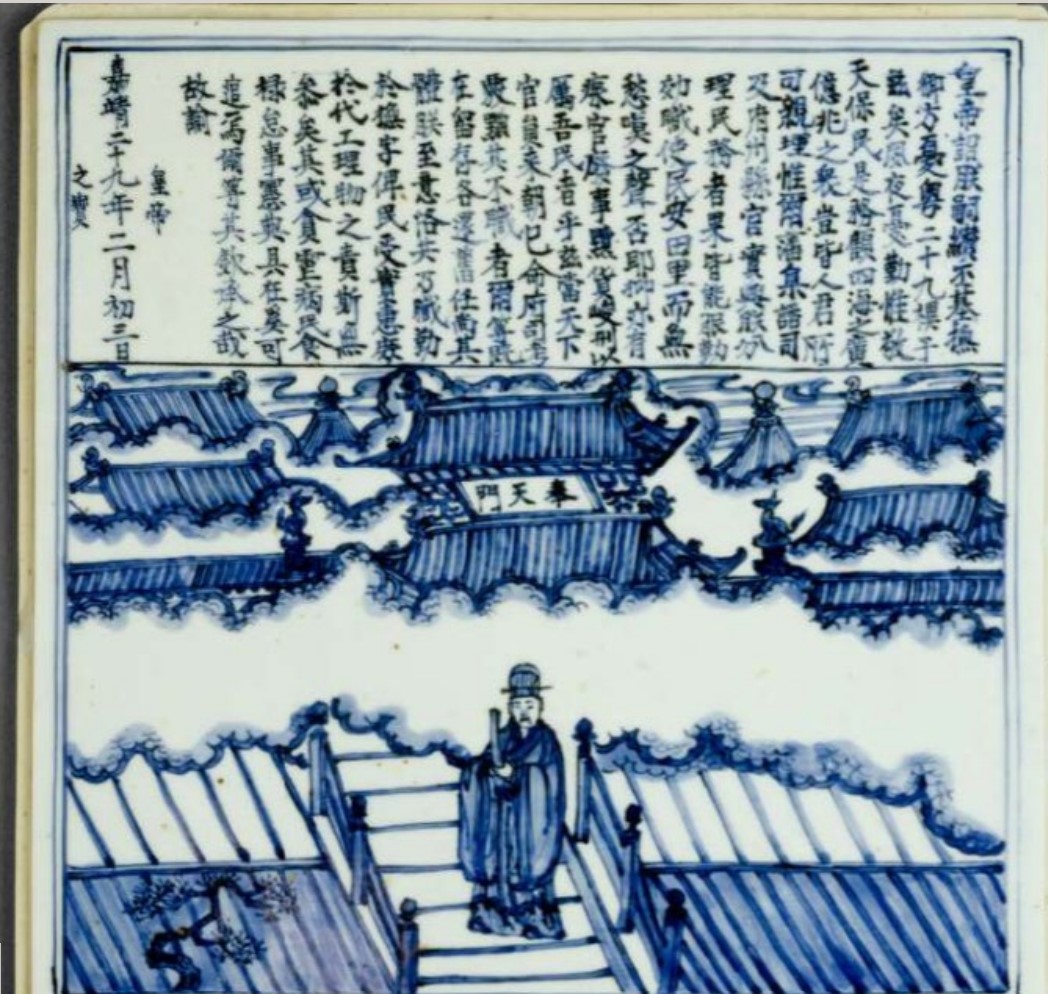 皇帝詔朕嗣纘丕基撫
御方憂粵二十九禩于
茲矣夙夜憂勤惟敬
天保民是務顧四海之廣
億兆之衆豈皆人君所
司親理惟爾藩臬諸司
及府州縣官實與朕分
理民務者果皆能勤
効職使民安田里而無
愁嘆之聲否耶抑亦有
瘝官廢事黷貨峻刑以
厲吾民者乎茲當天下
官員來朝已命府司考
覈黜其不職者爾等旣
在留存各還舊任尚其
體朕至意恪共乃職勤
於撫字俾民受實惠庶
於代工理物之責斯無
忝矣其或貪虐病民食
祿怠事憲典具在奚可
逭焉爾等其欽承之哉
故諭
皇帝
嘉靖二十九年二月初三日
之寶
奉天門